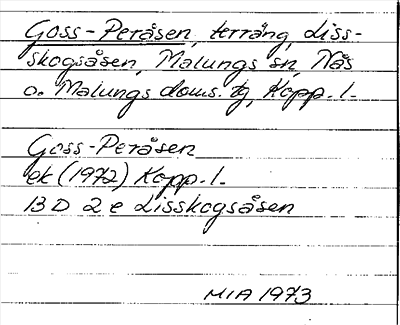 Goss-Peråsen, terräng, Liss-
skogsåsen, Malungs sn, Nås
o. Malungs doms. tg, Kopp. l.
Goss-Peråsen
ek (1972) Kopp. l.
13 D 2 e Lisskogsåsen
MIA 1973